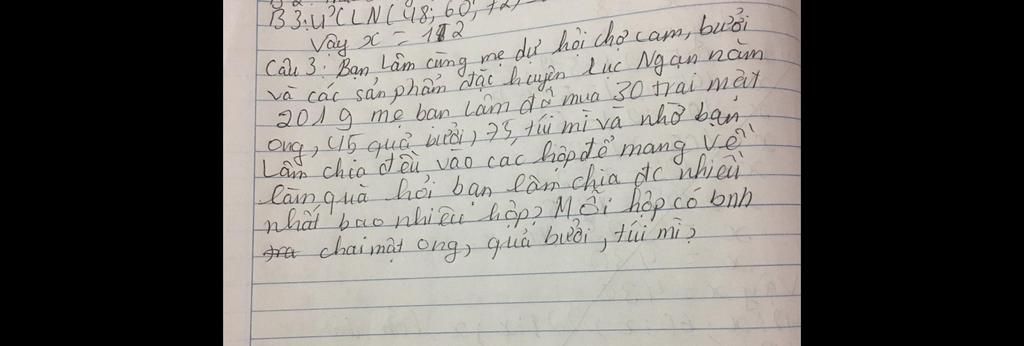 B3: ƯCLN(48; 60; 72)
Vậy x = 12
Câu 3: Bạn Lâm cùng mẹ dự hội chợ cam, bưởi
và các sản phẩm đặc huyện Lục Ngạn năm
2019 mẹ bạn Lâm đã mua 30 trai mật
ong, 45 quả bưởi, 75, túi mì và nhờ bạn
Lâm chia đều vào các hộp để mang về
làm quà hỏi bạn lâm chia đc nhiều
nhất bao nhiêu hộp? Mỗi hộp có bnh
chai mật ong, quả bưởi, túi mì?